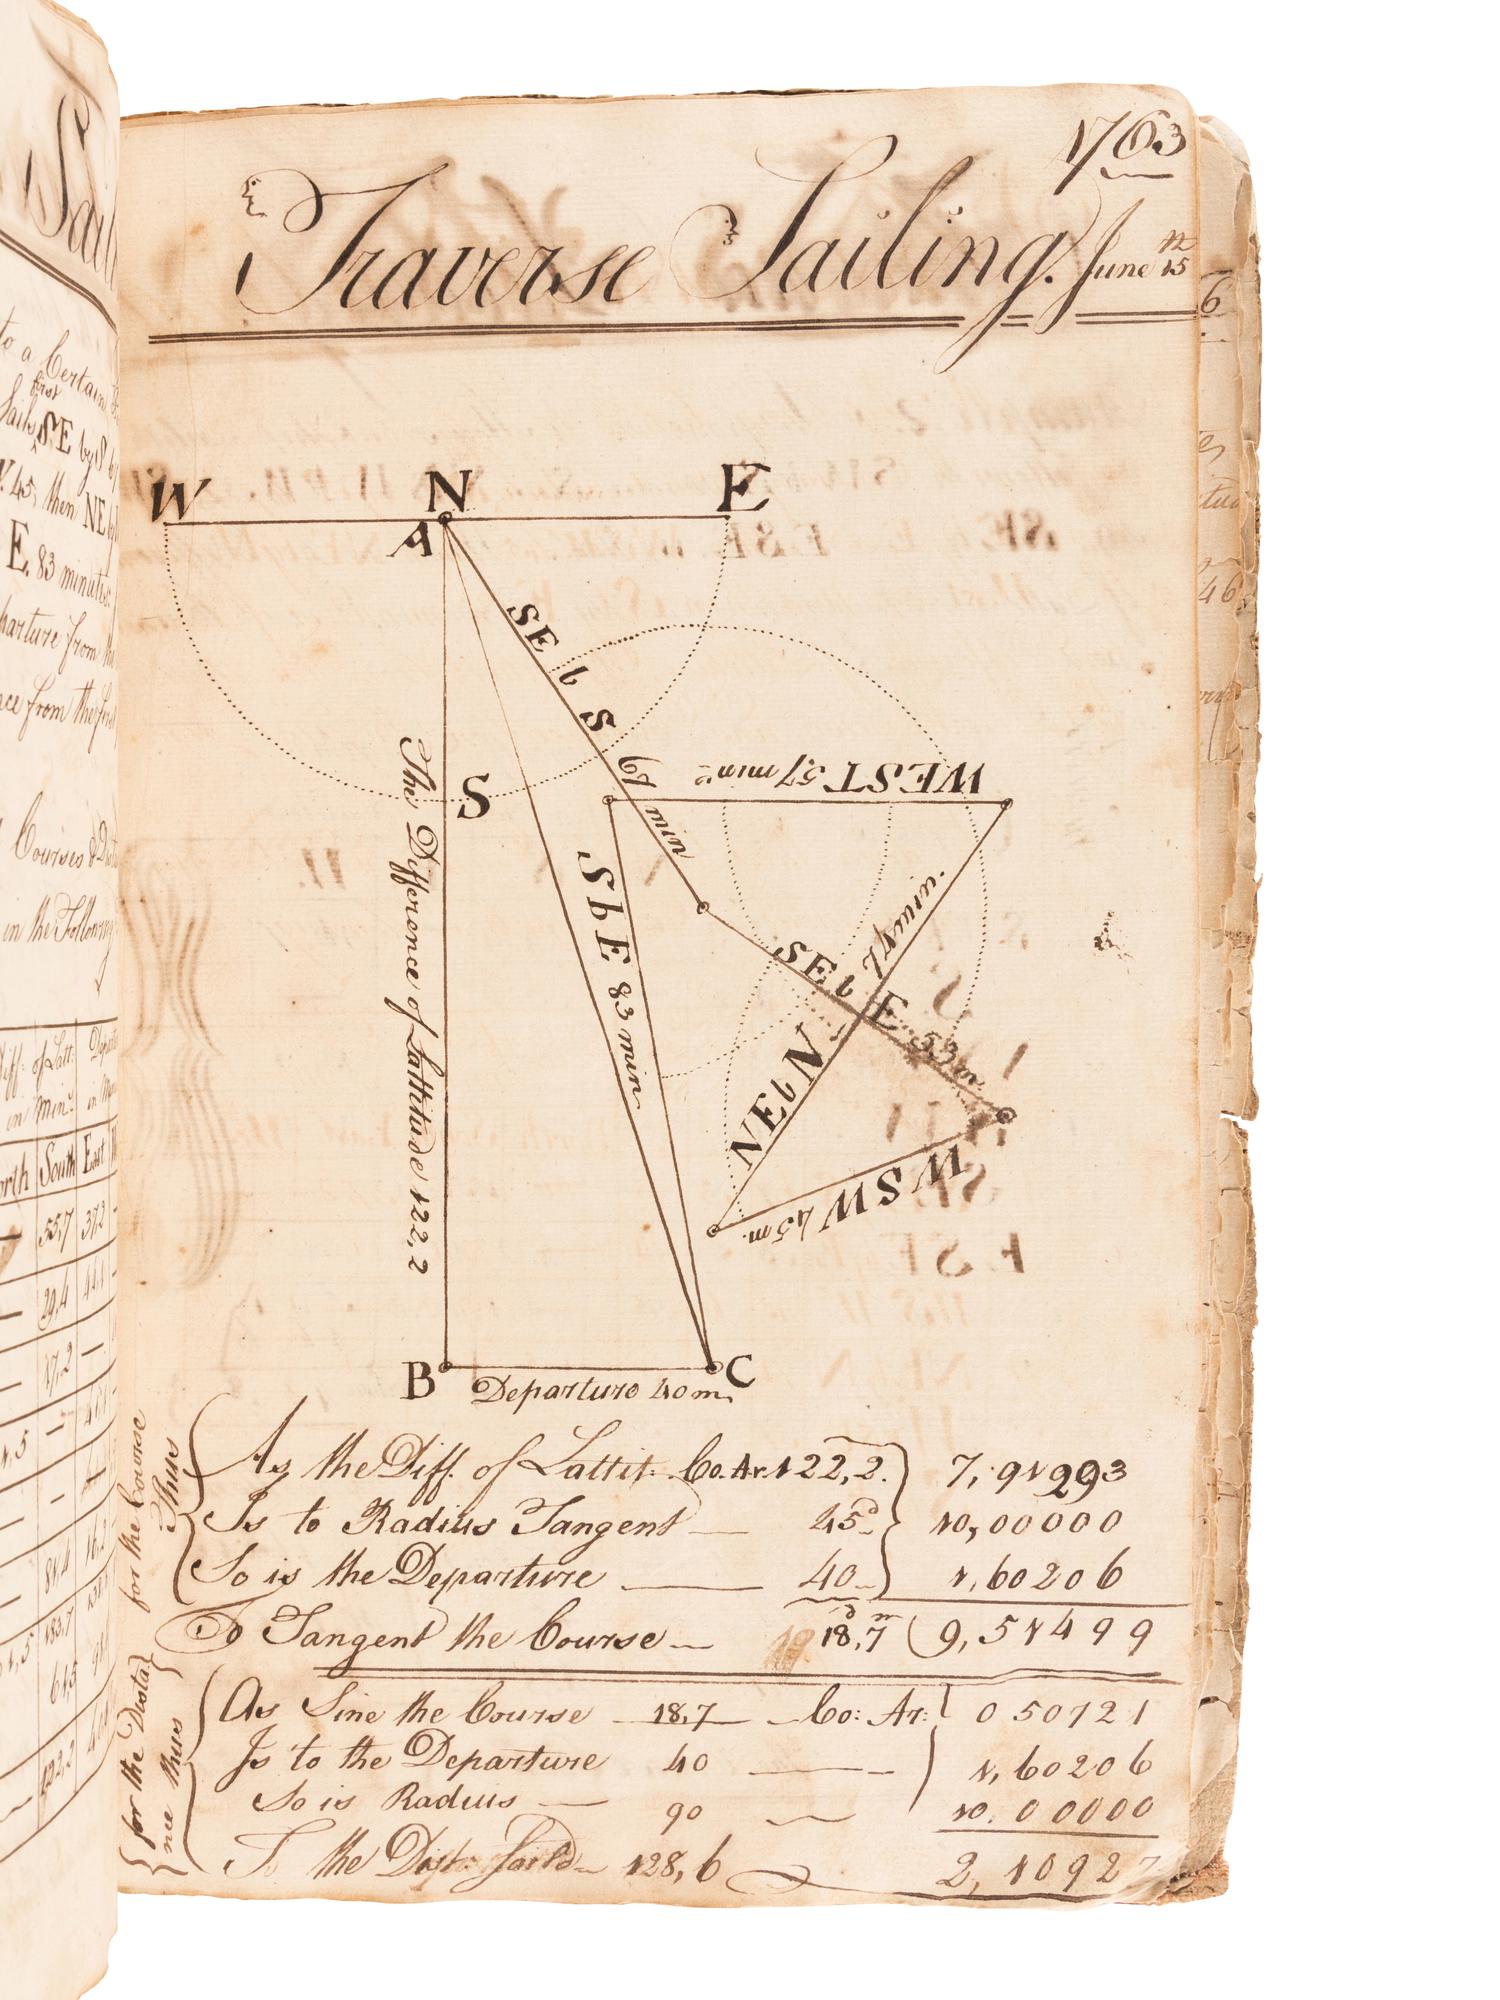 1763
Traverse Sailing. June th 15
W N E
A
SE b S 67 min
S
WEST 57 min.s
SbE 83 min
74 min.
NEbN
SEb E 53 m.
WSW 45 m.
The Difference of Lattitude 122,2
B C
Departure 40 m.
for the Course Thus
As the Diff. of Lattit: Co. Ar. 122,2. 7,91293
Is to Radius Tangent 45d 10,00000
So is the Departure 40 1,60206
To Tangent the Course 18d,7m 9,51499
for the Dista nce thus
As Sine the Course 18,7 Co: Ar: 0 50721
Is to the Departure 40 1,60206
So is Radius 90 10.00000
To the Dist: Sail'd 128,6 2,10927
to a Certain
first
Sails SE by S
45, then NE
E. 83 minutes
parture from the
ce from the
Courses &
in the Following
Diff: of Latt:
in Min.s
North South East
55,7 37,2
29,4 44,1
17,2
81,4 16,2
183,7
61,5
122,2
6
46